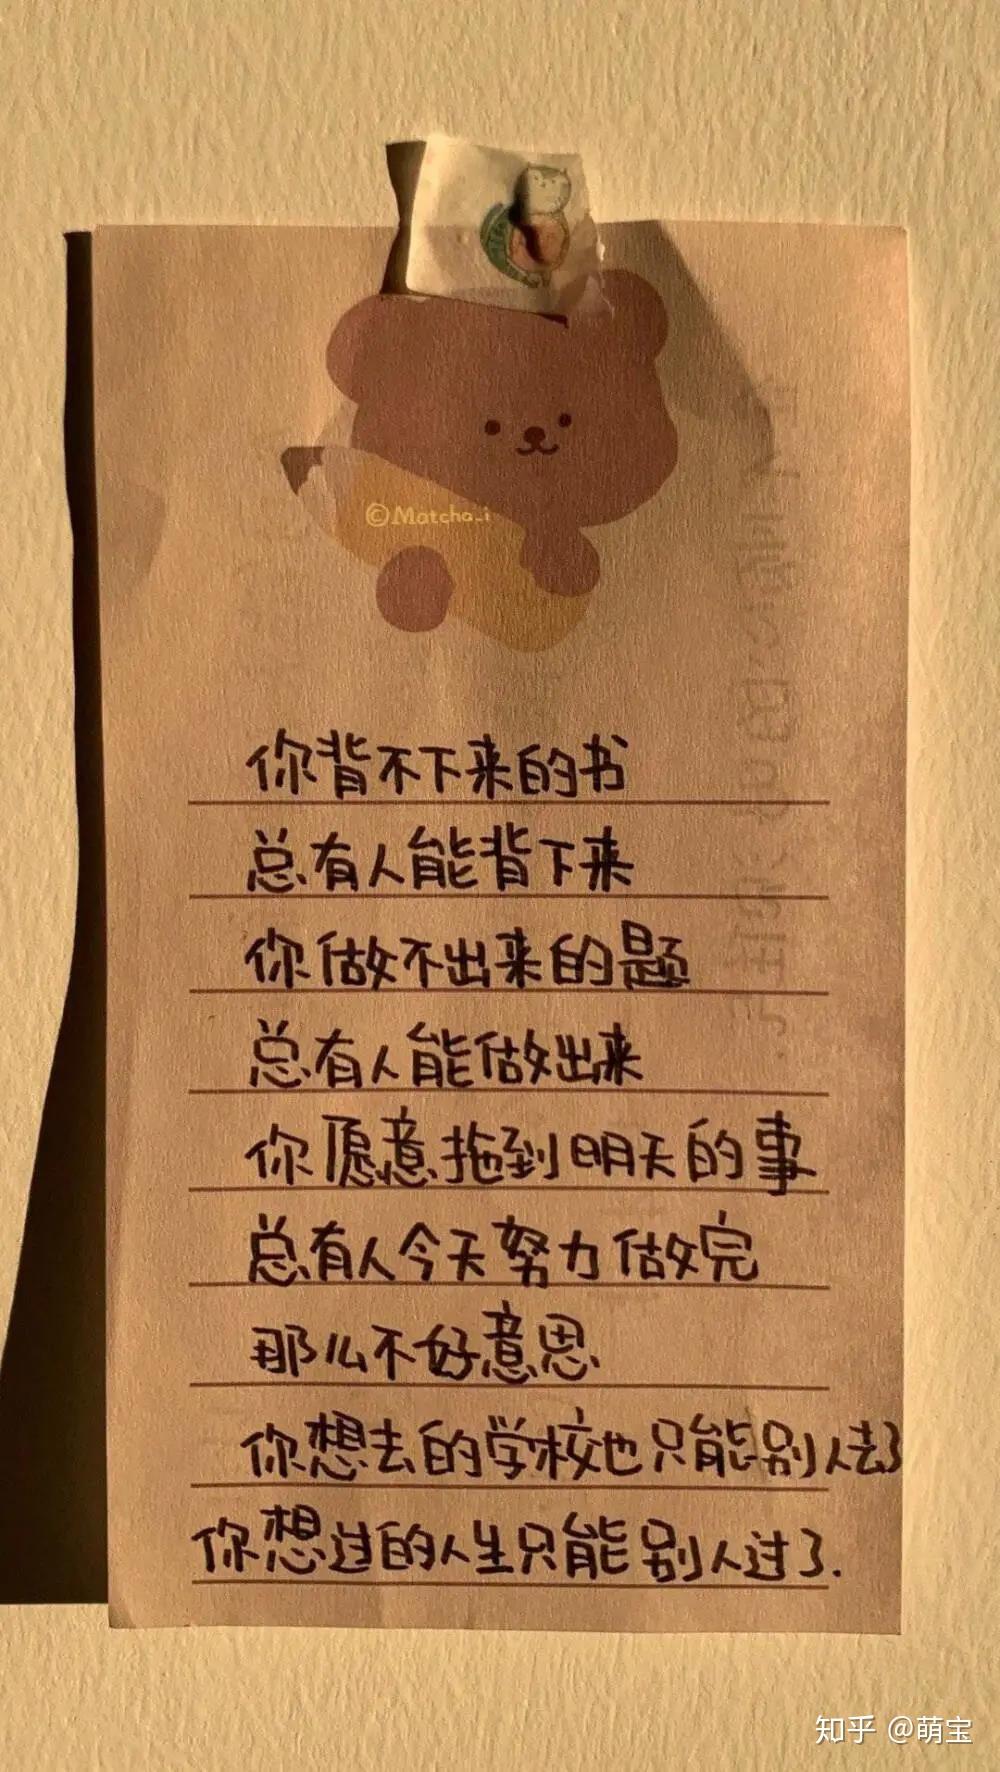 ©Matcha_i
你背不下来的书
总有人能背下来
你做不出来的题
总有人能做出来
你愿意拖到明天的事
总有人今天努力做完
那么不好意思
你想去的学校也只能别人去了
你想过的人生只能别人过了.
知乎 @萌宝